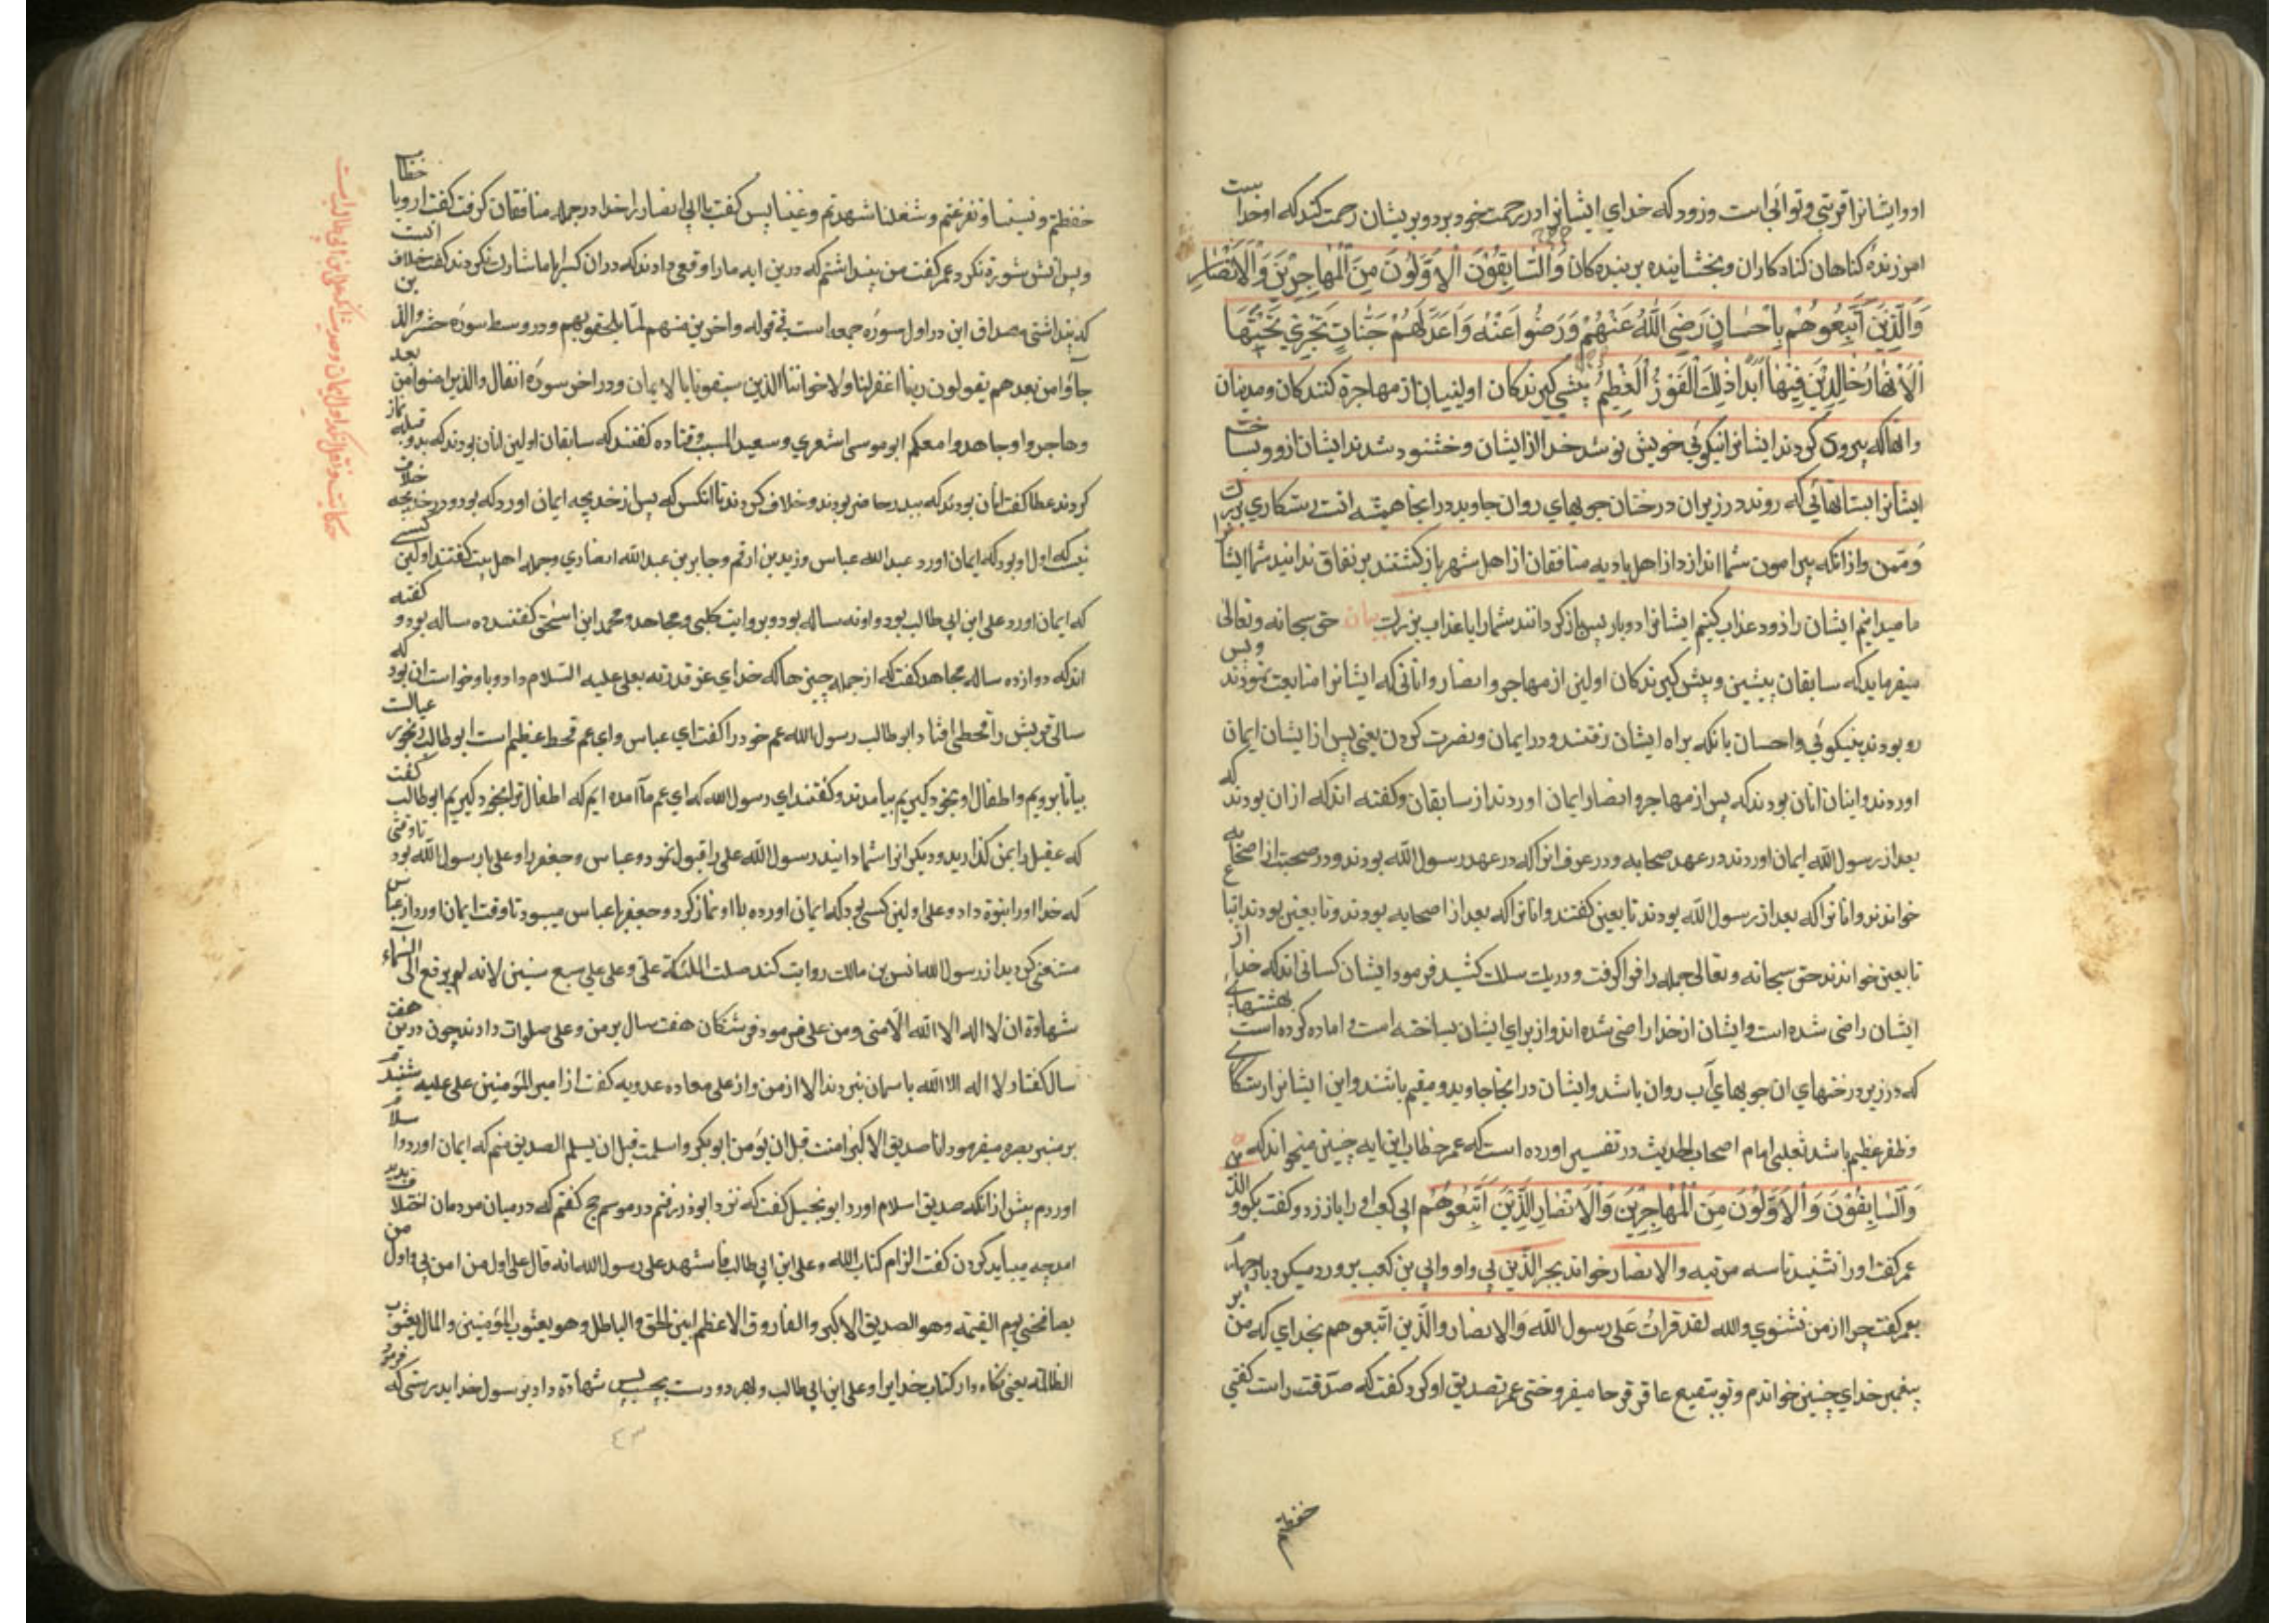 اورا ایشانرا قربتی و توابی است و زود که خدای ایشانرا در رحمت خود برد و بریشان رحمت کند که او خدا
امرزندهٔ کناهان کناه کاران و بخشاینده بر بنده کان وَالسَّابِقُوْنَ الْاَوَّلُوْنَ مِنَ الْمُهَاجِرِیْنَ وَالْاَنْصَارِ
وَالَّذِیْنَ اتَّبَعُوهُمْ بِاِحْسٰانٍ رَضِیَ اللّٰهُ عَنْهُمْ وَرَضُوا عَنْهُ وَاَعَدَّ لَهُمْ جَنّٰاتٍ تَجْرِیْ تَحْتَهَا
الْاَنْهٰارُ خٰالِدِیْنَ فِیْهٰا اَبَداً ذٰلِكَ الْفَوْزُ الْعَظِیْمُ پیشی کیرندکان اولینیان از مهاجرة کنندکان و
وانهاکه پیروی کردند ایشانرا نیکوئی خویش خشنود شد خدا از ایشان و خشنود شدند ایشان ازو
ایشانرا بستانهائی که روند در زیر ان درختان جویهای روان جاوید در انجا همیشه انست رستکاری بزرک
وَمِمَّن وازانکه پیرامون شما اند از اهل بادیه منافقان از اهل شهر باز کشتند بر نفاق ندانید شما ایشانرا
ما میدانیم ایشان را زود عذاب کنیم ایشانرا دوبار پس باز کردانند با عذاب بزرک بیان حق سبحانه وتعالی
میفرماید که سابقان پیشین و پیش کیرندکان اولین از مهاجر و انصار و انانی که ایشانرا متابعت نمودند
رو بودند بنیکوئی و احسان بانکه براه ایشان رفتند در ایمان و نصرت کردن یعنی پس از ایشان ایمان
اوردند و اینان انان بودند که پس از مهاجر و انصار ایمان اوردند از سابقان و کفته اند که ازان بودند که
بعد از رسول الله ایمان اوردند در عهد صحابه و در عرف انراکه در عهد رسول الله بودند و در صحبت او صحابه
خواندند و انانراکه بعد از رسول الله بودند تابعین کفتند و انانراکه بعد از صحابه بودند و تابعین بودند اتباع
تابعین خواندند حق سبحانه و تعالی جمله را فراکرفت و در یک سلک کشید فرمود ایشان کسانی اند که خدا از
ایشان راضی شده است و ایشان از خدا راضی شده اند و از برای ایشان ساخته است و اماده کرده است بهشتهای
که در زیر درختهای ان جویهای آب روان باشد و ایشان در انجا جاوید و مقیم باشند و این ایشانرا رستکاری
و ظفر عظیم باشد ثعلبی امام اصحاب الحدیث در تفسیر اورده است که عمر خطاب این ایه چنین میخواند که
وَالسَّابِقُوْنَ وَالْاَوَّلُوْنَ مِنَ الْمُهٰاجِرِیْنَ وَالْاَنْصٰارِ الَّذِیْنَ اتَّبَعُوهُمْ ابی کعب او را باز زد و کفت بکو والذین
عمر کفت او را نشنید تا سه مرتبه والانصار خواند بجر الذین بی واو و ابی بن کعب برو رد میکرد بار چهارم
بعمر کفت چرا از من نشنوی والله لقد قرات علی رسول الله والانصار والذین اتبعوهم بخدای که من بر
پیغمبر خدای چنین خواندم و تو ببقیع میفروختی عمر تصدیق او کرد کفت که صدقت راست کفتی
حفظتم
حفظتم ونسینا وتفرغتم وشغلنا وشهدتم وغبنا پس کفت یا ابی انصار را خدا در جمله کرفت کفت
و پس مشورة نکرد عمر کفت من پنداشتم که درین ایه مارا وقعی دادند که دران کسرا با ما مشارک نکردند کفت خلاف انست
که پنداشتی مصداق این در اول سوره جمعه است فی قوله واخرین منهم لما یلحقوا بهم و در وسط سوره حشر والذین
جاؤا من بعدهم یقولون ربنا اغفر لنا ولاخواننا الذین سبقونا بالایمان و در اخر سوره انفال والذین امنوا من بعد
وهاجروا وجاهدوا معکم ابو موسی اشعری و سعید المسیب و قتاده کفتند که سابقان اولین انان بودند که بدو قبله نماز
کردند عطا کفت انان بودند که ببدر حاضر بودند و خلاف کردند تا انکس که پس از خدیجه ایمان اورد که بود و در خدیجه خلاف
نیست که اول او بود که ایمان اورد عبدالله عباس و زید بن ارقم و جابر بن عبدالله انصاری و جمله اهل بیت کفتند اولین کسی
که ایمان اورد علی ابن ابی طالب بود و او نه ساله بود و بروایت کلبی و مجاهد و محمد ابن اسحق کفتند ده ساله بود و کفته
اند که دوازده ساله مجاهد کفت که از جمله چیزهاکه خدای عز قدرته بعلی علیه السلام داد و باو خواست ان بود که
سالی قریش را قحطی افتاد ابو طالب رسول الله عم خود را کفت ای عباس و ای عم قحط عظیم است ابو طالب عیالت
بیا تا برویم و اطفال او بخود کیریم بیامدند و کفتند ای رسول الله که ای عم ما آمده ایم که اطفال ترا بخود کیریم ابو طالب کفت
که عقیل را بمن کذارید و دیکرانرا شما دانید رسول الله علی را قبول نمود و عباس و جعفر را و علی با رسول الله بود تا وقتی
که خدا او را نبوة داد و علی اولین کسی بود که ایمان اورده با او نماز کرد و جعفر با عباس میبود تا وقت ایمان اورد از عباس
مستغنی کردید از رسول الله انس بن مالک روایت کند صلت الملئکة علیّ وعلی علی سبع سنین لانه لم یرفع الی السماء
شهادة ان لا اله الا الله الّا منی ومن علی فرمود فرشتکان هفت سال بر من و علی صلوات دادند چون درین هفت
سال کفتار لا اله الا الله باسمان نبردند الا از من و از علی معاده عدویه کفت از امیر المؤمنین علی علیه شنیدم
بر منبر بصره میفرمود انا صدیق الاکبر امنت قبل ان یؤمن ابو بکر واسلمت قبل ان یسلم الصدیق منم که ایمان اوردم و اسلام
اوردم پیش ازانکه صدیق اسلام اورد ابو نجیل کفت که نزد ابوذر رفتم در موسم حج کفتم که در میان مردمان اختلاف پدید
امد چه میباید کردن کفت الزام کتاب الله و علی ابن ابی طالب فاشهد علی رسول الله انه قال علی اول من امن بی واول من
یصافحنی یوم القیمه وهو الصدیق الاکبر والفاروق الاعظم بین الحق والباطل وهو یعسوب المؤمنین والمال یعسوب
الظالمة یعنی نکاه دار کتاب خدایرا و علی ابن ابی طالب و بهر دو دست بچسب پس شهادة داد بر رسول خدا بدرستی که فرمود